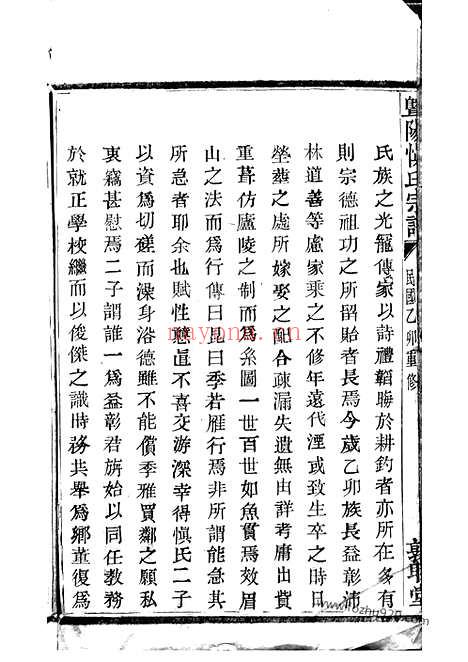 暨陽慎氏宗譜
民國乙卯重修
堂
氏族之光寵傳家以詩禮韜聯於耕釣者亦所在多有
則宗德祖功之所留貽者長焉今歲乙卯族長益彰沛
林道善等慮家乘之不修年遠代湮或致生卒之時日
塋葬之處所嫁娶之配合疎漏失遺無由詳考庸出貲
重葺仿廬陵之制而為系圖一世百世如魚貫焉效眉
山之法而為行傳曰昆曰季若雁行焉非所謂能急其
所急者耶余也賦性戇直不喜交游深幸得慎氏二子
以資為切磋而澡身浴德雖不能償季雅買鄰之願私
衷竊甚慰焉二子謂誰一為益彰君旂始以同任教務
於就正學校繼而以俊傑之識時務共舉為鄉董復為
mayong.ha
www.kongfz.com